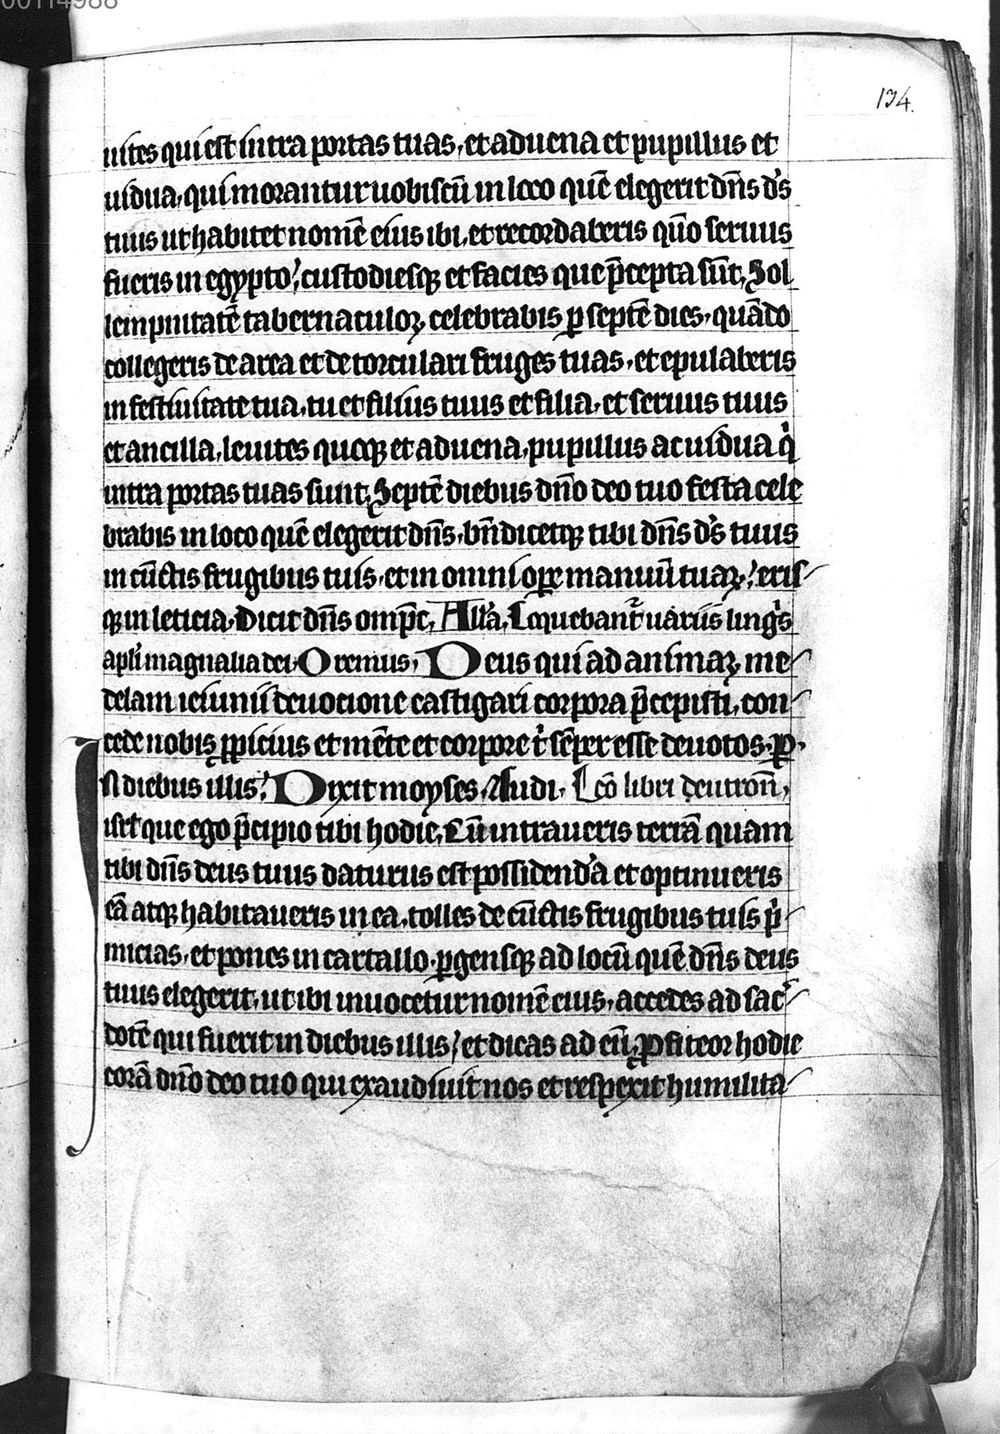 00114988
134.
uites qui est intra portas tuas, et aduena et pupillus et
uidua, qui morantur uobiscū in loco quē elegerit dn̄s ds̄
tuus ut habitet nomē eius ibi, et recordaberis qm̄o seruus
fueris in egypto, custodiesq; et facies que p̄cepta sūt, Sol
lempnitatē tabernaculoꝝ celebrabis ꝑ septē dies, quādo
collegeris de area et de torculari fruges tuas, et epulaberis
in festiuitate tua, tu et filius tuus et filia, et seruus tuus
et ancilla, leuites quoq; et aduena, pupillus ac uidua q̇
intra portas tuas sunt, Septē diebus dn̄o deo tuo festa cele
brabis in loco quē elegerit dn̄s, bn̄dicetq; tibi dn̄s ds̄ tuus
in cūctis frugibus tuis, et in omni oꝑe manuū tuaꝝ, eris
q; in leticia, Dicit dn̄s omp̄c, All'a, Loquebant᷑ uariis linġs
apl'i magnalia dei, Oremus, Deus qui ad animaꝝ me
delam ieiunii deuocione castigari corpora p̄cepisti, con
cede nobis ꝓpicius et mēte et corpore t̄ sēper esse deuotos, ꝑ.
In diebus illis, Dixit moyses, Audi, Lēo libri deutron̄,
isrl' que ego p̄cipio tibi hodie, Cū intraueris terrā quam
tibi dn̄s deus tuus daturus est possidendā et optinueris
eā atq; habitaueris in ea, tolles de cūctis frugibus tuis ṗ
micias, et pones in cartallo, ꝑgensq; ad locū quē dn̄s deus
tuus elegerit, ut ibi inuocetur nomē eius, accedes ad sac̄
dotē qui fuerit in diebus illis, et dicas ad eū, Ꝓfiteor hodie
corā dn̄o deo tuo qui exaudiuit nos et respexit humilita